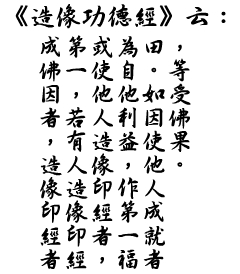 《造像功德經》云：
成佛因者，造像印經者
第一，若有人造像印經
或使他人造像，印經者，
為自他利益，作第一福
田。如因使他人成就者
，等受佛果。